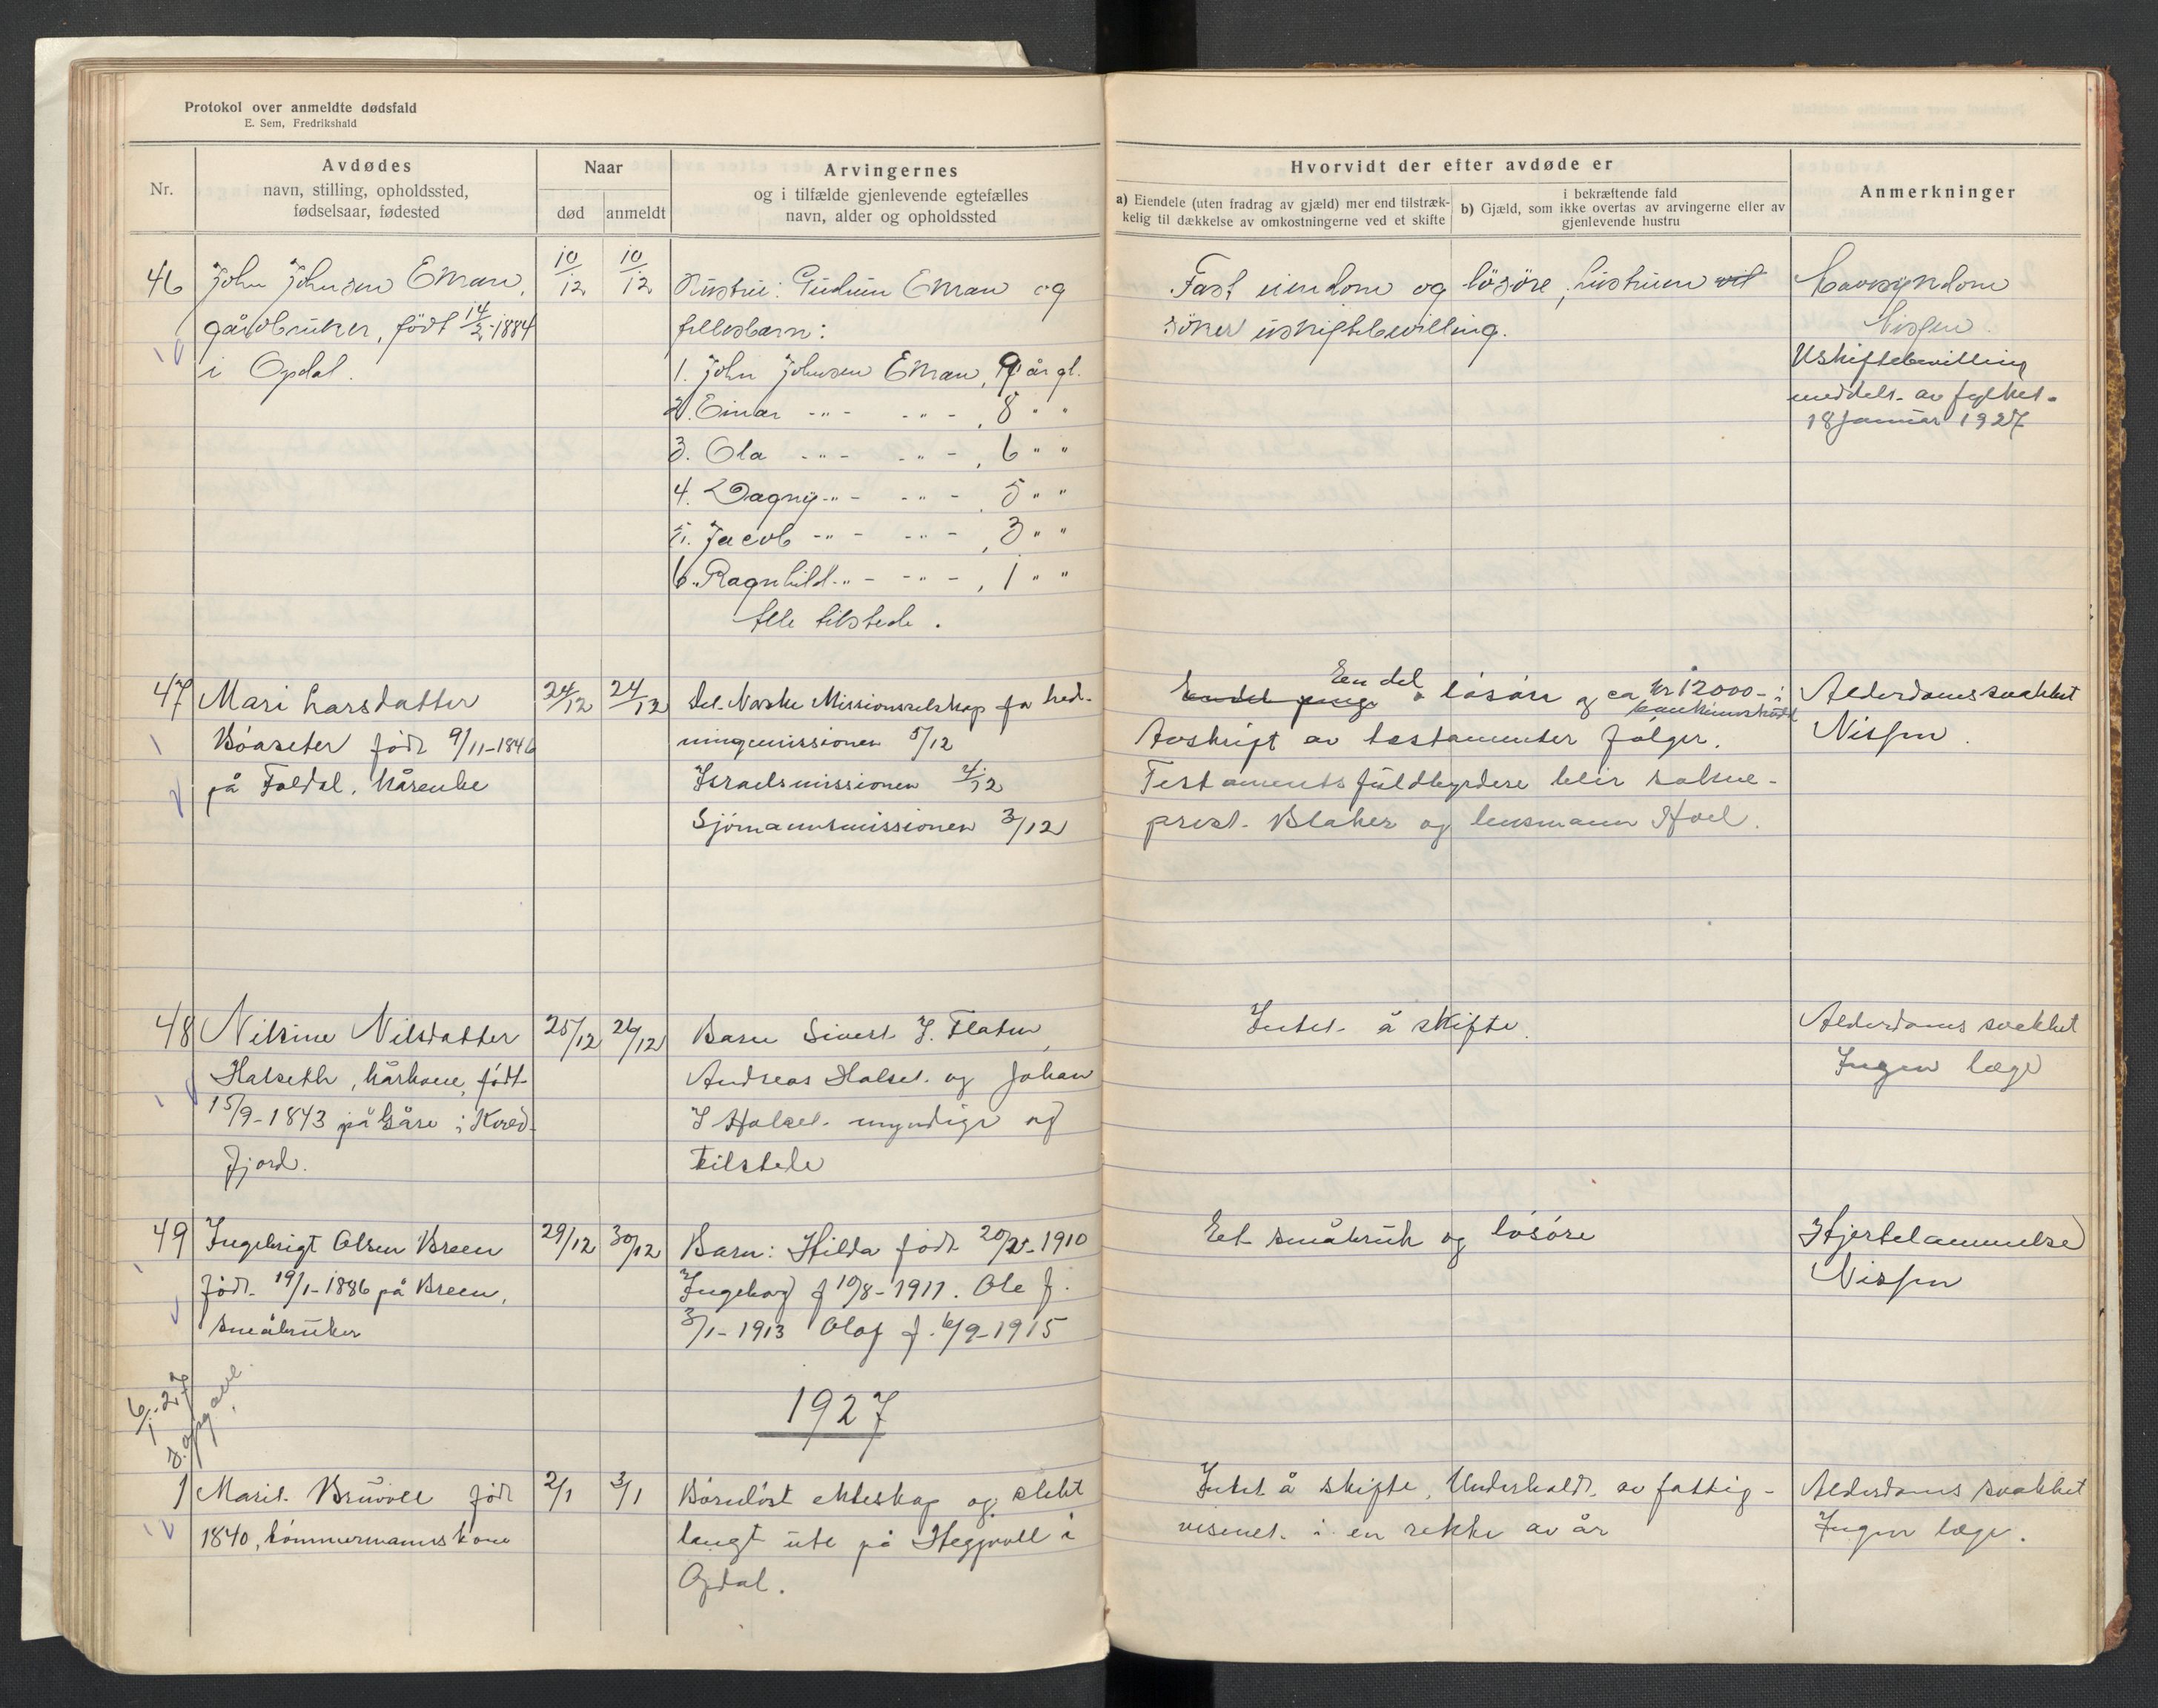 Protokol over anmeldte dødsfald
E. Sem, Fredrikshald
Nr.
Avdødes
navn, stilling, opholdssted,
fødselsaar, fødested
Naar
død
anmeldt
Arvingernes
og i tilfælde gjenlevende egtefælles
navn, alder og opholdssted
Hvorvidt der efter avdøde er
a) Eiendele (uten fradrag av gjæld) mer end tilstræk-
kelig til dækkelse av omkostningerne ved et skifte
i bekræftende fald
b) Gjæld, som ikke overtas av arvingerne eller av
gjenlevende hustru
Anmerkninger
46
John Johnsen Ekran,
gårdbruker, født 14/2-1884
i Opdal.
10/12
10/12
Hustru: Gudrun Ekran og
fellesbarn:
1. John Johnsen Ekran, 9 år gl.
2. Einar -"- -"-, 8 " "
3. Ola -"- -"-, 6 " "
4. Dagny -"- -"-, 5 " "
5. Jacob -"- -"-, 3 " "
6. Ragnhild -"- -"-, 1 " "
Alle tilstede.
Fast eiendom og løsøre, hustruen vil
søker uskiftebevilling.
Nissen.
Uskiftebevilling
meddelt av fylket
18 januar 1927
47
Mari Larsdatter
Böaseter född 9/11-1846
på Foldal, kårenke
24/12
24/12
Det Norske Missionsselskap for hed-
ningemissionen 5/12
Israelsmissionen 4/12
Sjömannsmissionen 3/12
En del penge En del løsøre og ca kr 12000- i
bankinnskudd
Avskrift av testamentet følger.
Testamentsfuldbyrdere blir sokne-
prest Blaker og lensmann Hoel.
Alderdomssvakhet
Nissen.
48
Nilsine Nilsdatter
Halseth, kårkone, født
15/9-1843 på Gåre i Kved-
fjord.
25/12
26/12
Barn Sivert J. Flatm,
Andreas Halset og Johan
J Halset myndige og
tilstede
Intet å skifte.
Alderdomssvakhet
Ingen læge
49
Ingebrigt Olsen Breen
født 19/1-1886 på Breen,
småbruker
29/12
30/12
Barn: Hilda født 20/2-1910
Ingeborg f 10/8-1911. Ole f.
3/1-1913 Olaf f. 6/9-1915
Et småbruk og løsøre
Hjertelammelse
Nissen
6/1-27
d. opgave.
1927
1
Marit Bruvoll født
1840, tømmermannskone
2/1
3/1
Barnløst ekteskap og slekt
langt ute på Heggvoll i
Opdal.
Intet å skifte. Underholdt av fattig-
vesenet i en rekke av år
Alderdoms svakhet
Ingen læge.